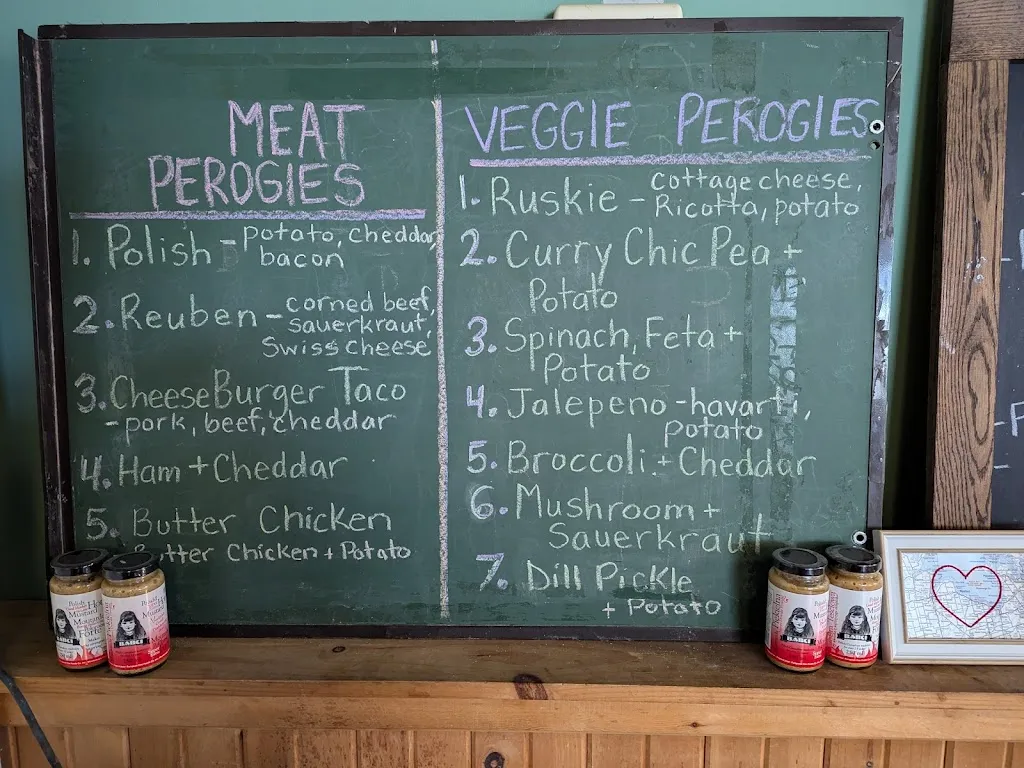 MEAT
PEROGIES
1. Polish - potato, cheddar,
bacon
2. Reuben - corned beef,
sauerkraut,
Swiss cheese
3. CheeseBurger Taco
- pork, beef, cheddar
4. Ham + Cheddar
5. Butter Chicken
Butter Chicken + Potato
VEGGIE PEROGIES
1. Ruskie - cottage cheese,
Ricotta, potato
2. Curry Chic Pea +
Potato
3. Spinach, Feta +
Potato
4. Jalepeno - havarti,
potato
5. Broccoli + Cheddar
6. Mushroom +
Sauerkraut
7. Dill Pickle
+ Potato
Polish
Hot
Mustard
BABCI
BABCI
BABCI
BABCI